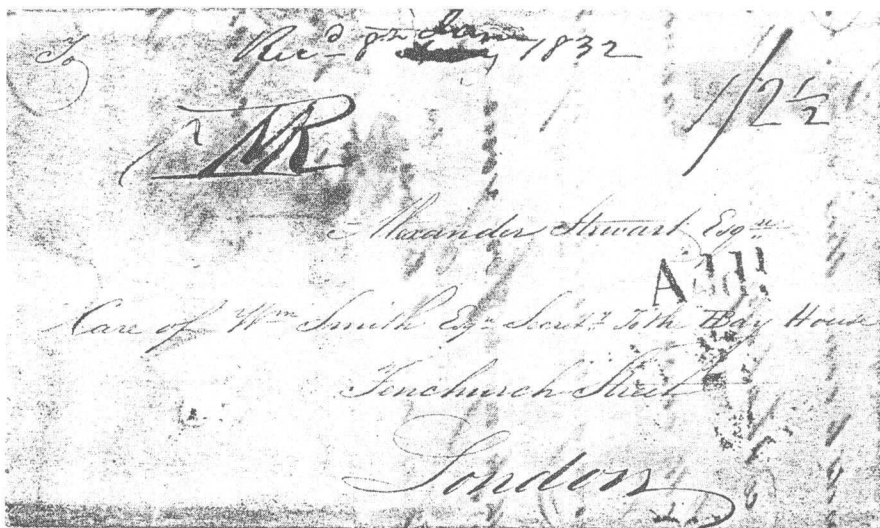 To
Rec'd 8th Jany 1832
1/2½
Alexander Stewart Esqre
Care of Wm Smith Esqr Secrety To the HBay House
Fenchurch Street
London